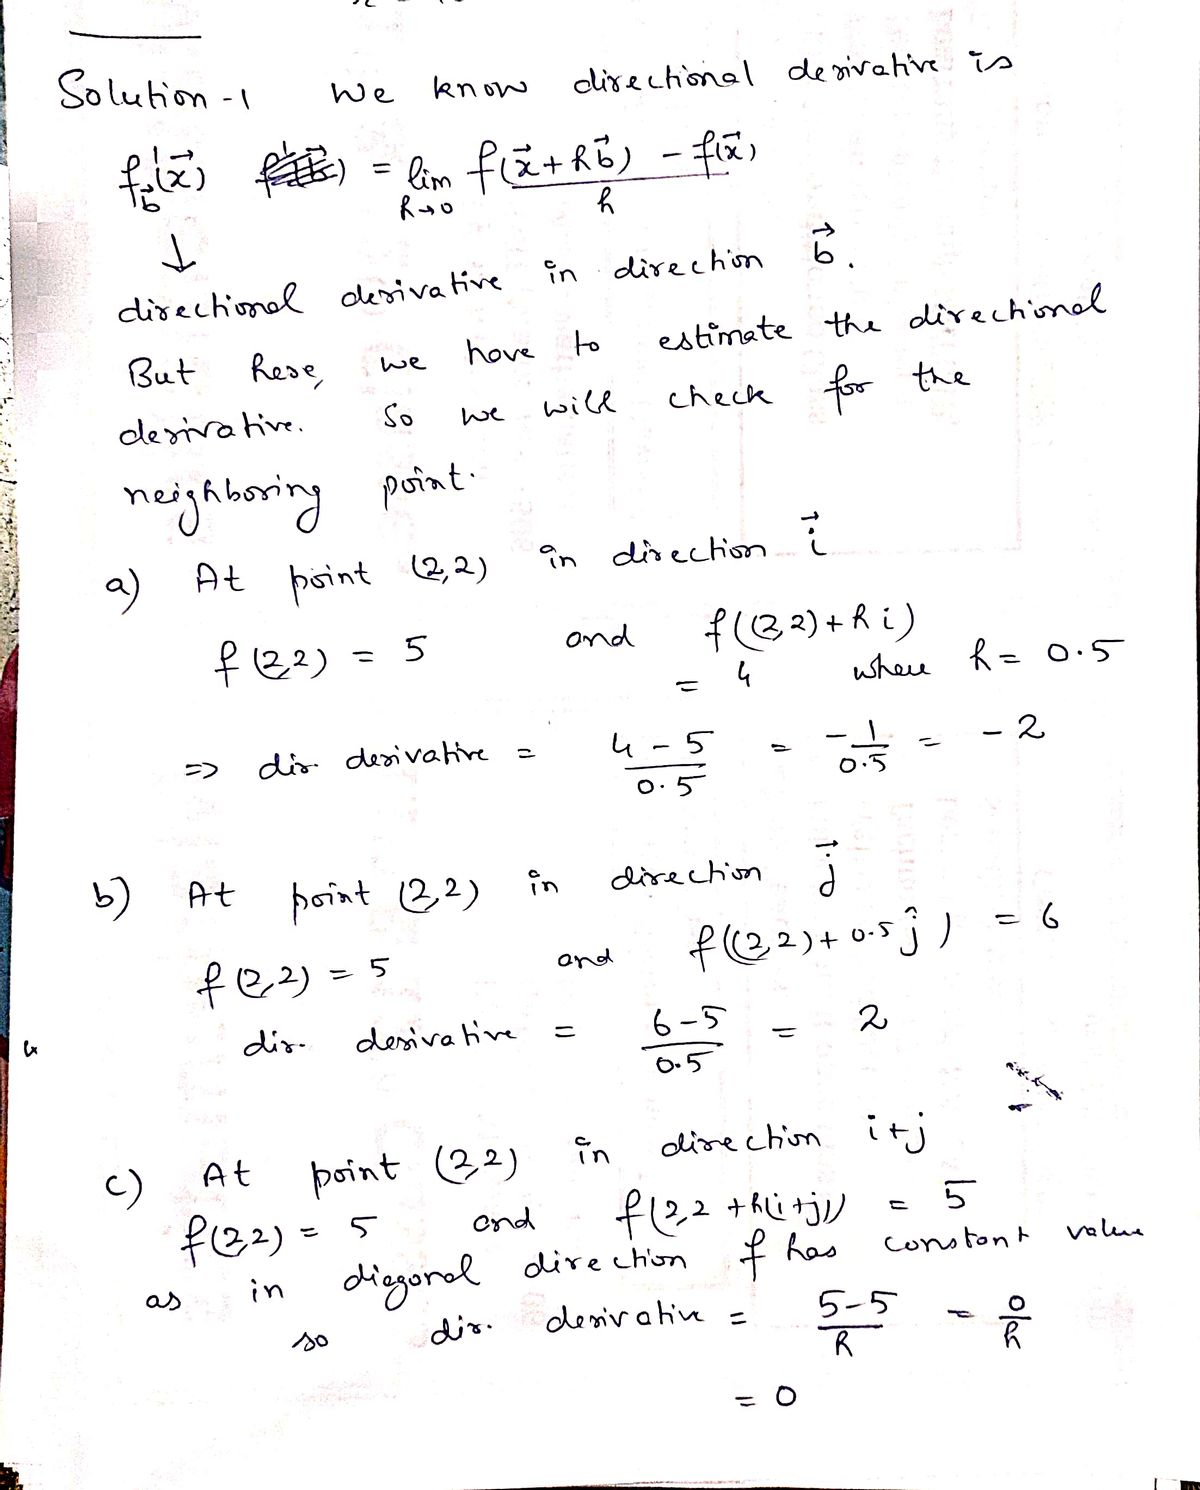 Solution-1 We know directional derivative is
f'_b⃗(x⃗) = lim_{h→0} f(x⃗+hb⃗) - f(x⃗) / h
↓
directional derivative in direction b⃗.
But here, we have to estimate the directional
derivative. So we will check for the
neighboring point.
a) At point (2,2) in direction i⃗
f(2,2) = 5 and f((2,2)+hi)
= 4 where h = 0.5
=> dir. derivative = 4-5 / 0.5 = -1/0.5 = -2
b) At point (2,2) in direction j⃗
f(2,2) = 5 and f((2,2)+0.5ĵ) = 6
dir. derivative = 6-5 / 0.5 = 2
c) At point (2,2) in direction i+j
f(2,2) = 5 and f(2,2+h(i+j)) = 5
as in diagonal direction f has constant value
so dir. derivative = 5-5 / h = 0/h
= 0